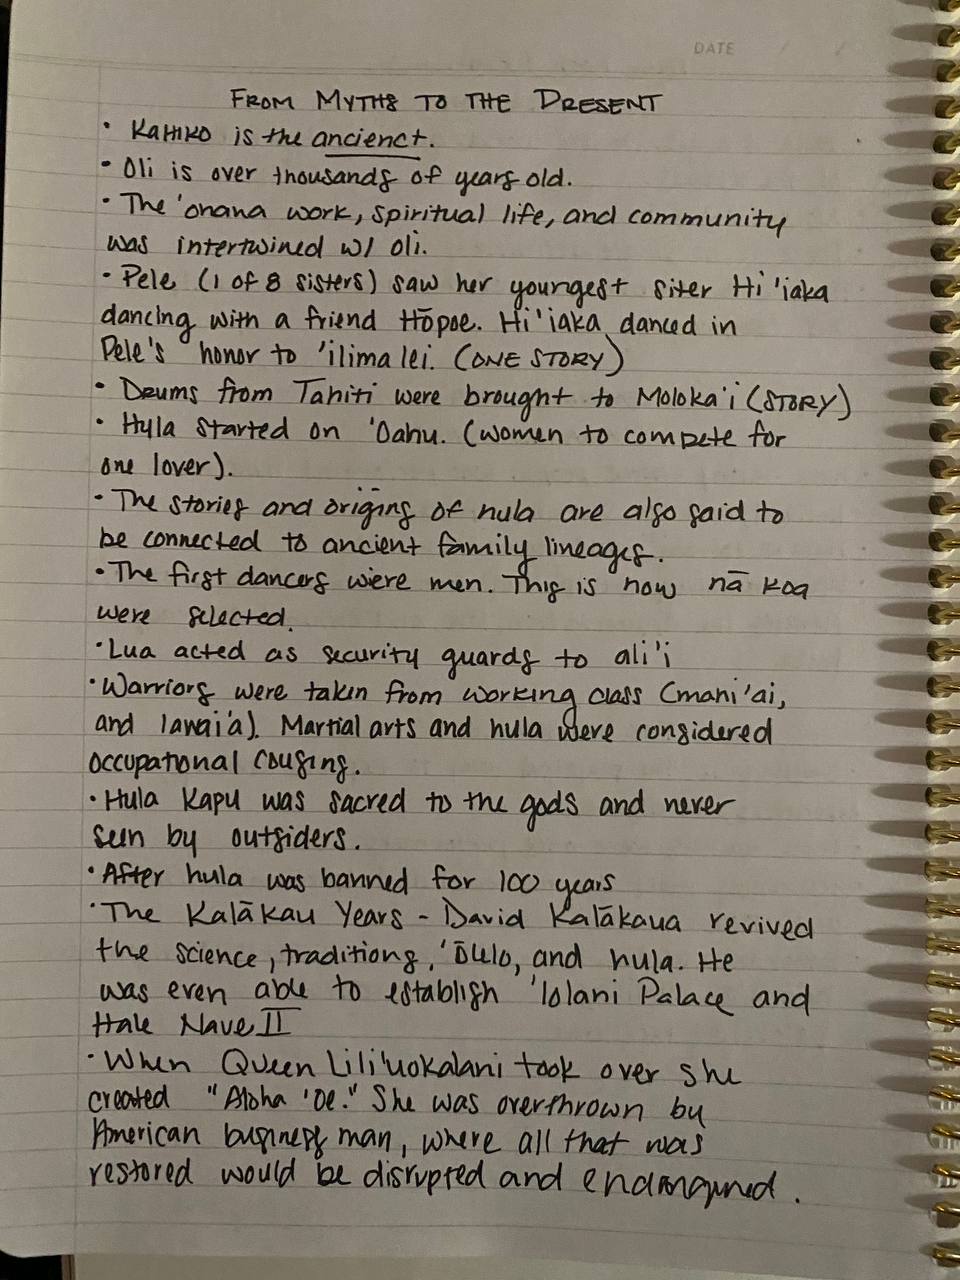 DATE / /
FROM MYTHS TO THE PRESENT
• KAHIKO is the ancienct.
• Oli is over thousands of years old.
• The 'ohana work, spiritual life, and community
was intertwined w/ oli.
• Pele (1 of 8 sisters) saw her youngest siter Hi'iaka
dancing with a friend Hōpoe. Hi'iaka danced in
Pele's honor to 'ilima lei. (ONE STORY)
• Drums from Tahiti were brought to Moloka'i (STORY)
• Hula started on 'Oahu. (women to compete for
one lover).
• The stories and origins of hula are also said to
be connected to ancient family lineages.
• The first dancers were men. This is how nā koa
were selected.
• Lua acted as security guards to ali'i
• Warriors were taken from working class (mani'ai,
and lawai'a). Martial arts and hula were considered
occupational
• Hula Kapu was sacred to the gods and never
seen by outsiders.
• After hula was banned for 100 years
• The Kalākau Years - David Kalākaua revived
the science, traditions, and hula. He
was even able to establish 'Iolani Palace and
Hale Nave II
• When Queen Lili'uokalani took over she
created "Aloha 'Oe." She was overthrown by
American business man, where all that was
restored would be disrupted and